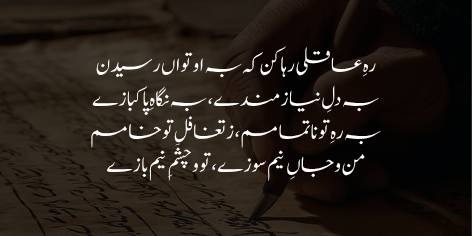 رہِ عاقلی رہا کن کہ بہ او تواں رسیدن
بہ دلِ نیاز مندے، بہ نگاہِ پاکبازے
بہ رہِ تو ناتمامم، ز تغافلِ تو خامم
من و جاں نیم سوزے، تو و چشمِ نیم بازے